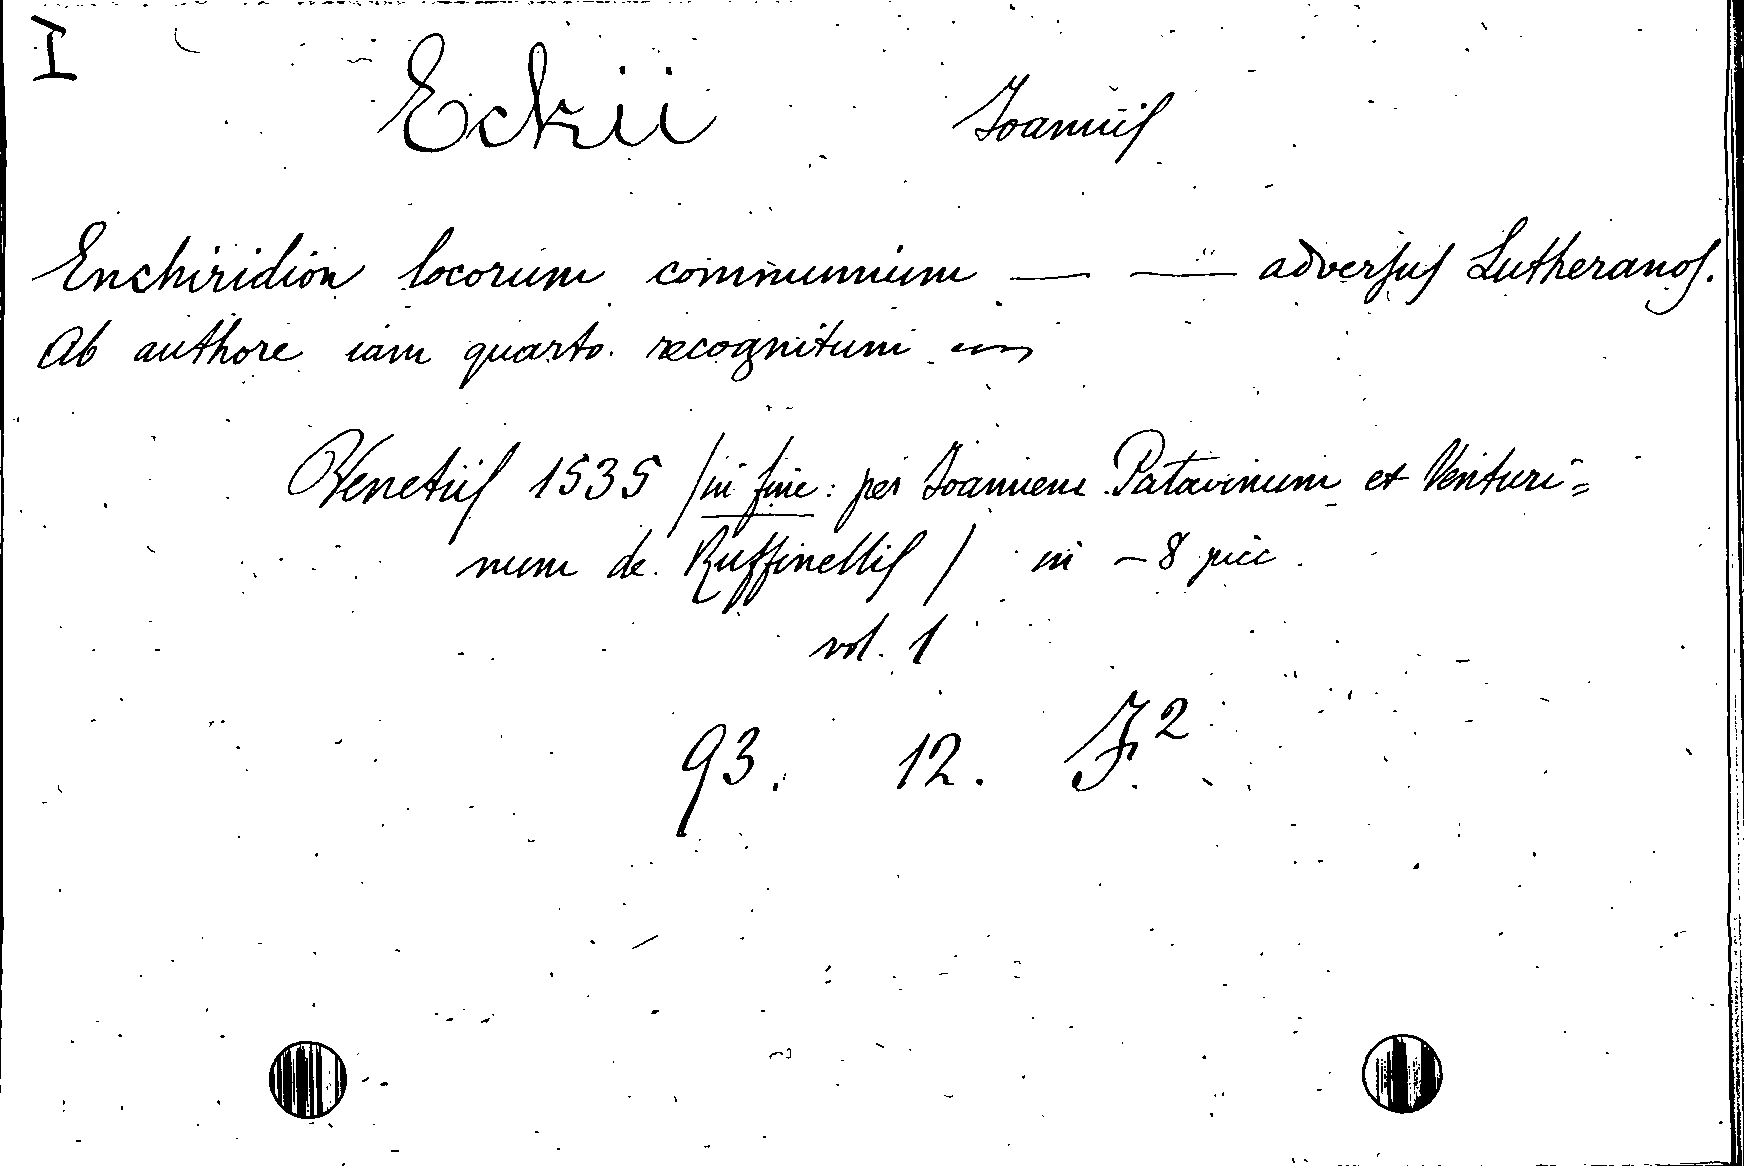 I
Eckii Joannis
Enchiridion locorum communium — — adversus Lutheranos.
Ab authore iam quarto recognitum
Venetiis 1535 / in fine: per Joannem Patavinum et Venturi=
num de Ruffinellis / in -8 picc
vol. 1
93. 12. F.2